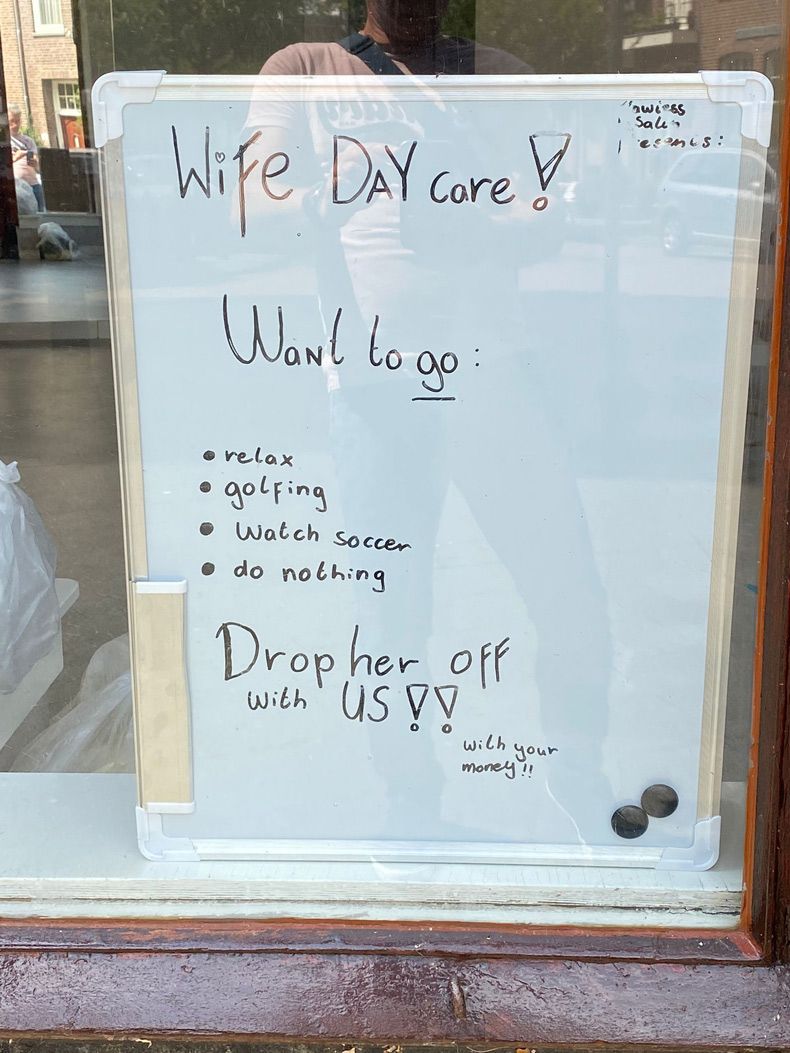 Sale
Wife DAY care!
Want to go:
• relax
• golfing
• Watch soccer
• do nothing
Drop her off
with US!!
with your
money!!